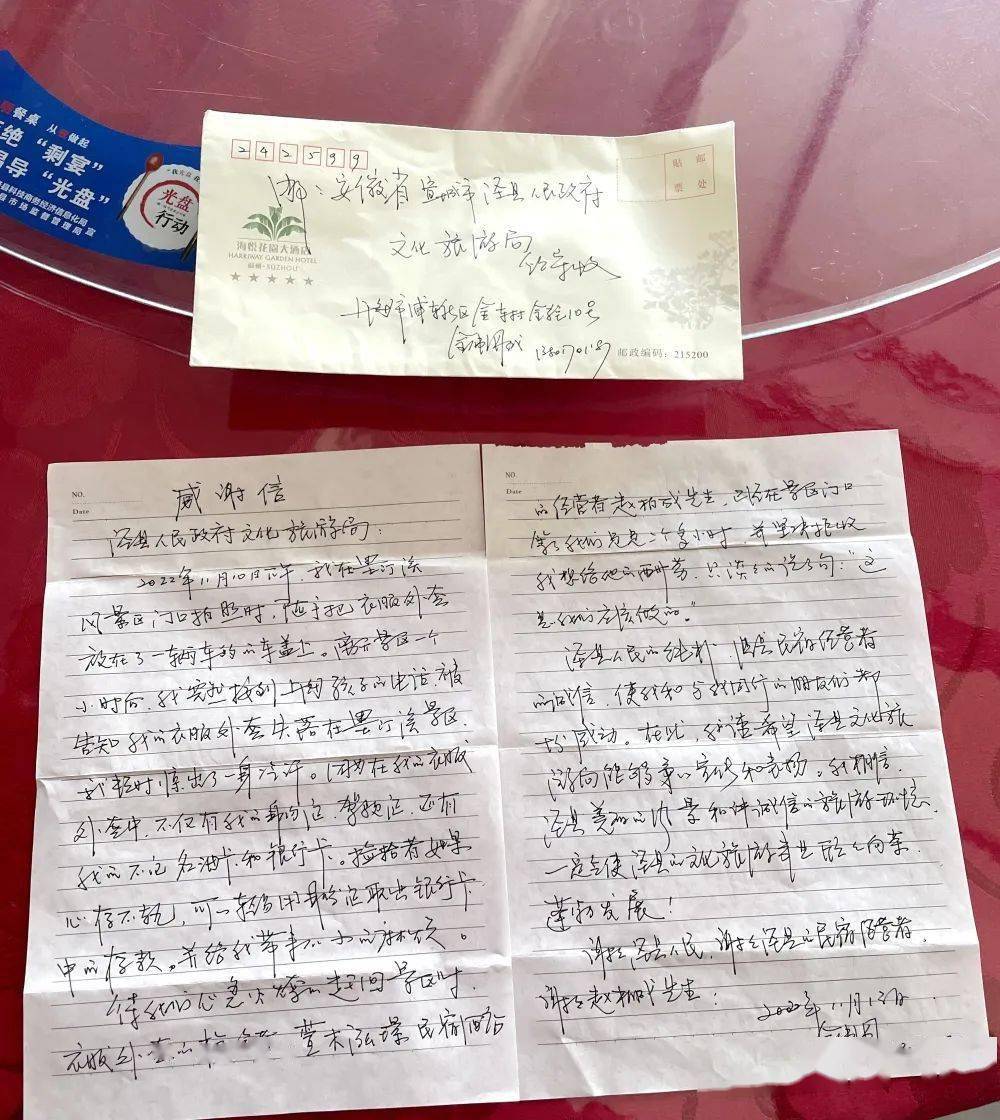 餐桌 从 做起
绝“剩宴”
倡导“光盘”
县科技商务经济信息化局
市场监督管理局 宣
光盘
行动
242599
贴 邮
票 处
安徽省宣城市泾县人民政府
文化旅游局
收
海悦花园大酒店
HARRIWAY GARDEN HOTEL
SUZHOU
★★★★★
上海市浦东新区金 村金 10号
邮政编码：215200
NO.
Date
感谢信
泾县人民政府文化旅游局：
2022年11月10日下午，我在
风景区门口拍照时，随手把衣服外套
放在了一辆车的车盖上。离开景区一个
小时后，我突然接到上海孩子的电话被
告知我的衣服外套失落在 景区，
我顿时惊出了一身冷汗。因为在我的衣服
外套中，不仅有我的身份证、驾驶证，还有
我的不记名油卡和银行卡。捡拾者如果
心存不轨，可 用身份证取出银行卡
中的存款。并给我带来不小的麻烦。
待我们心急火燎的赶回景区时，
衣服外套的 民宿
NO.
Date
的经营者赵柏成先生，已经在景区门口
等了我们足足一个多小时，并坚决拒收
我想给他的酬劳，只淡淡的说了句：“这
是我们应该做的。”
泾县人民的纯朴，泾县民宿经营者
的诚信，使我和与我同行的朋友们都
十分感动。在此，我谨希望泾县文化旅
游局能够予以宣传和表扬。我相信，
泾县美丽的 景和讲诚信的旅游环境，
一定会使泾县的文化旅游事业欣欣向荣，
蓬勃发展！
谢谢泾县人民，谢谢泾县的民宿经营者，
谢谢赵柏成先生！
2022年11月13日